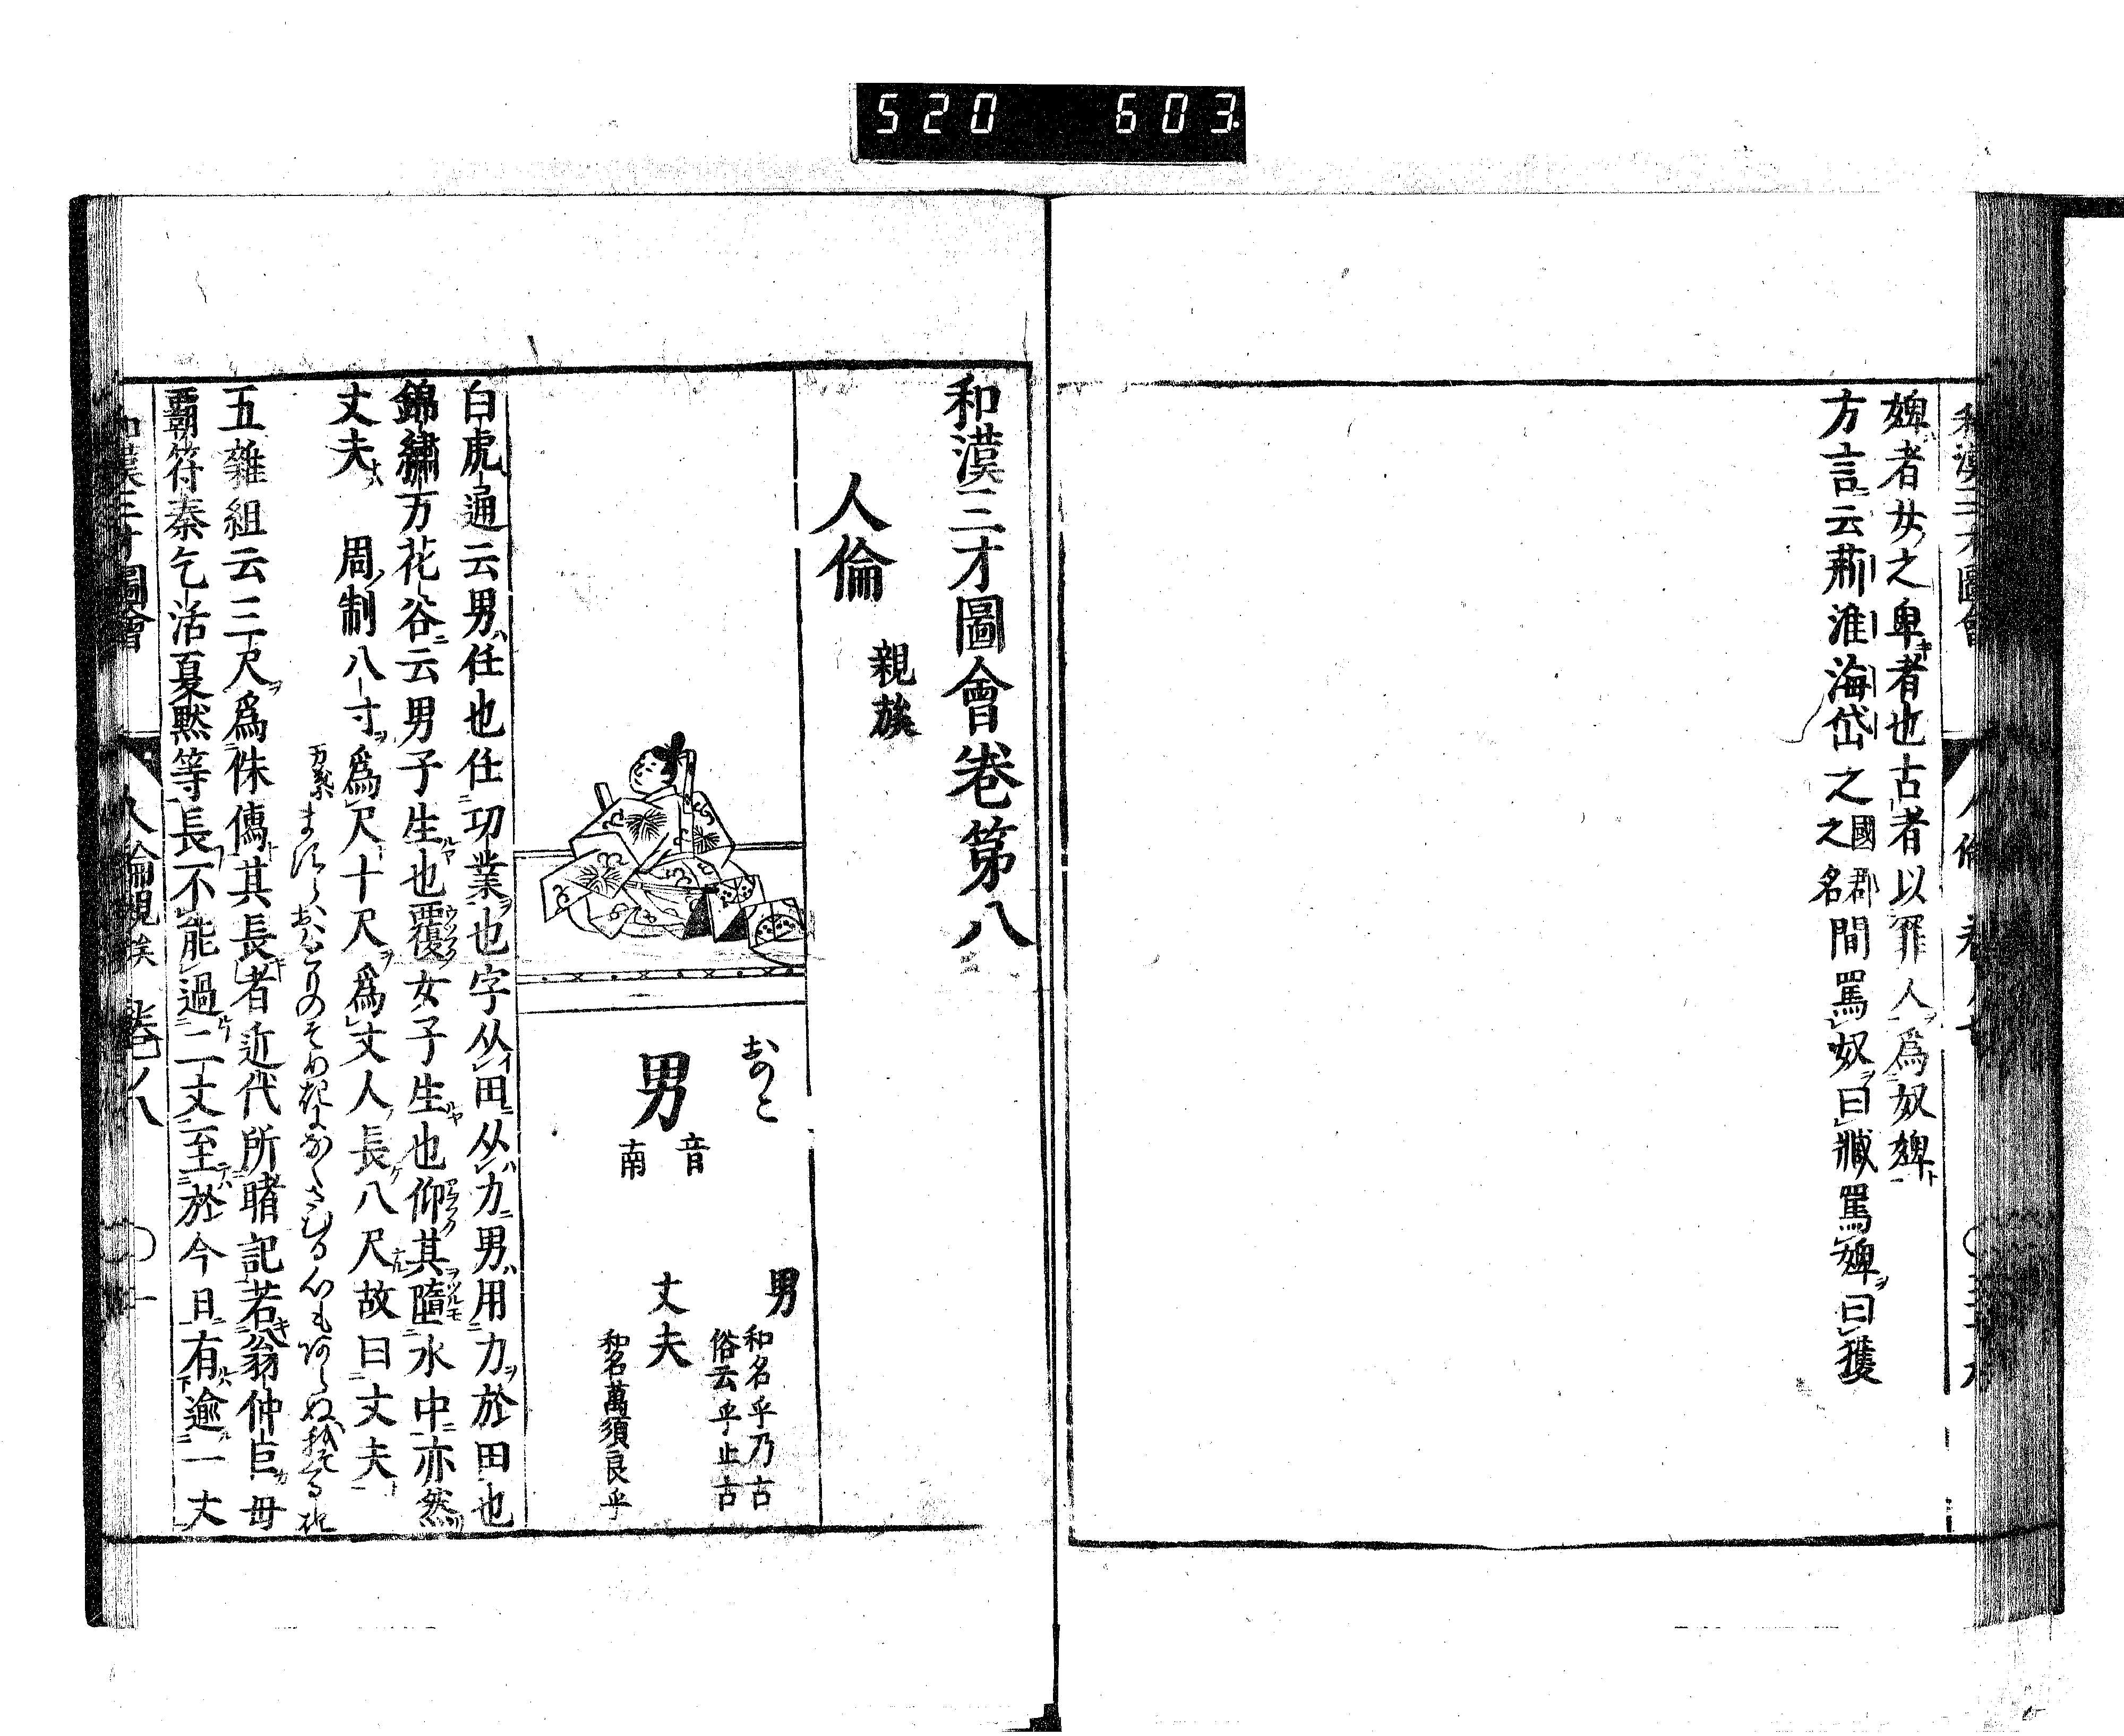 520 603
婢者女之卑者也古者以罪人爲奴婢
方言云荊淮海岱之國郡之名間罵奴曰臧罵婢曰獲
和漢三才圖會卷第八
人倫 親族
おのこ
男
音南
男 和名乎乃古 俗云乎止古
丈夫 和名萬須良乎
白虎通云男任也任功業也字从田从力男用力於田也
錦繡万花谷云男子生也覆女子生也仰其墮水中亦然
丈夫 周制八寸爲尺十尺爲丈人長八尺故曰丈夫
五雜組云三尺爲侏儒其長者近代所睹記若翁仲巨毋
覇符秦乞活夏默等長不能過二丈至於今且有逾一丈
和漢三才圖會 人倫親族 卷八